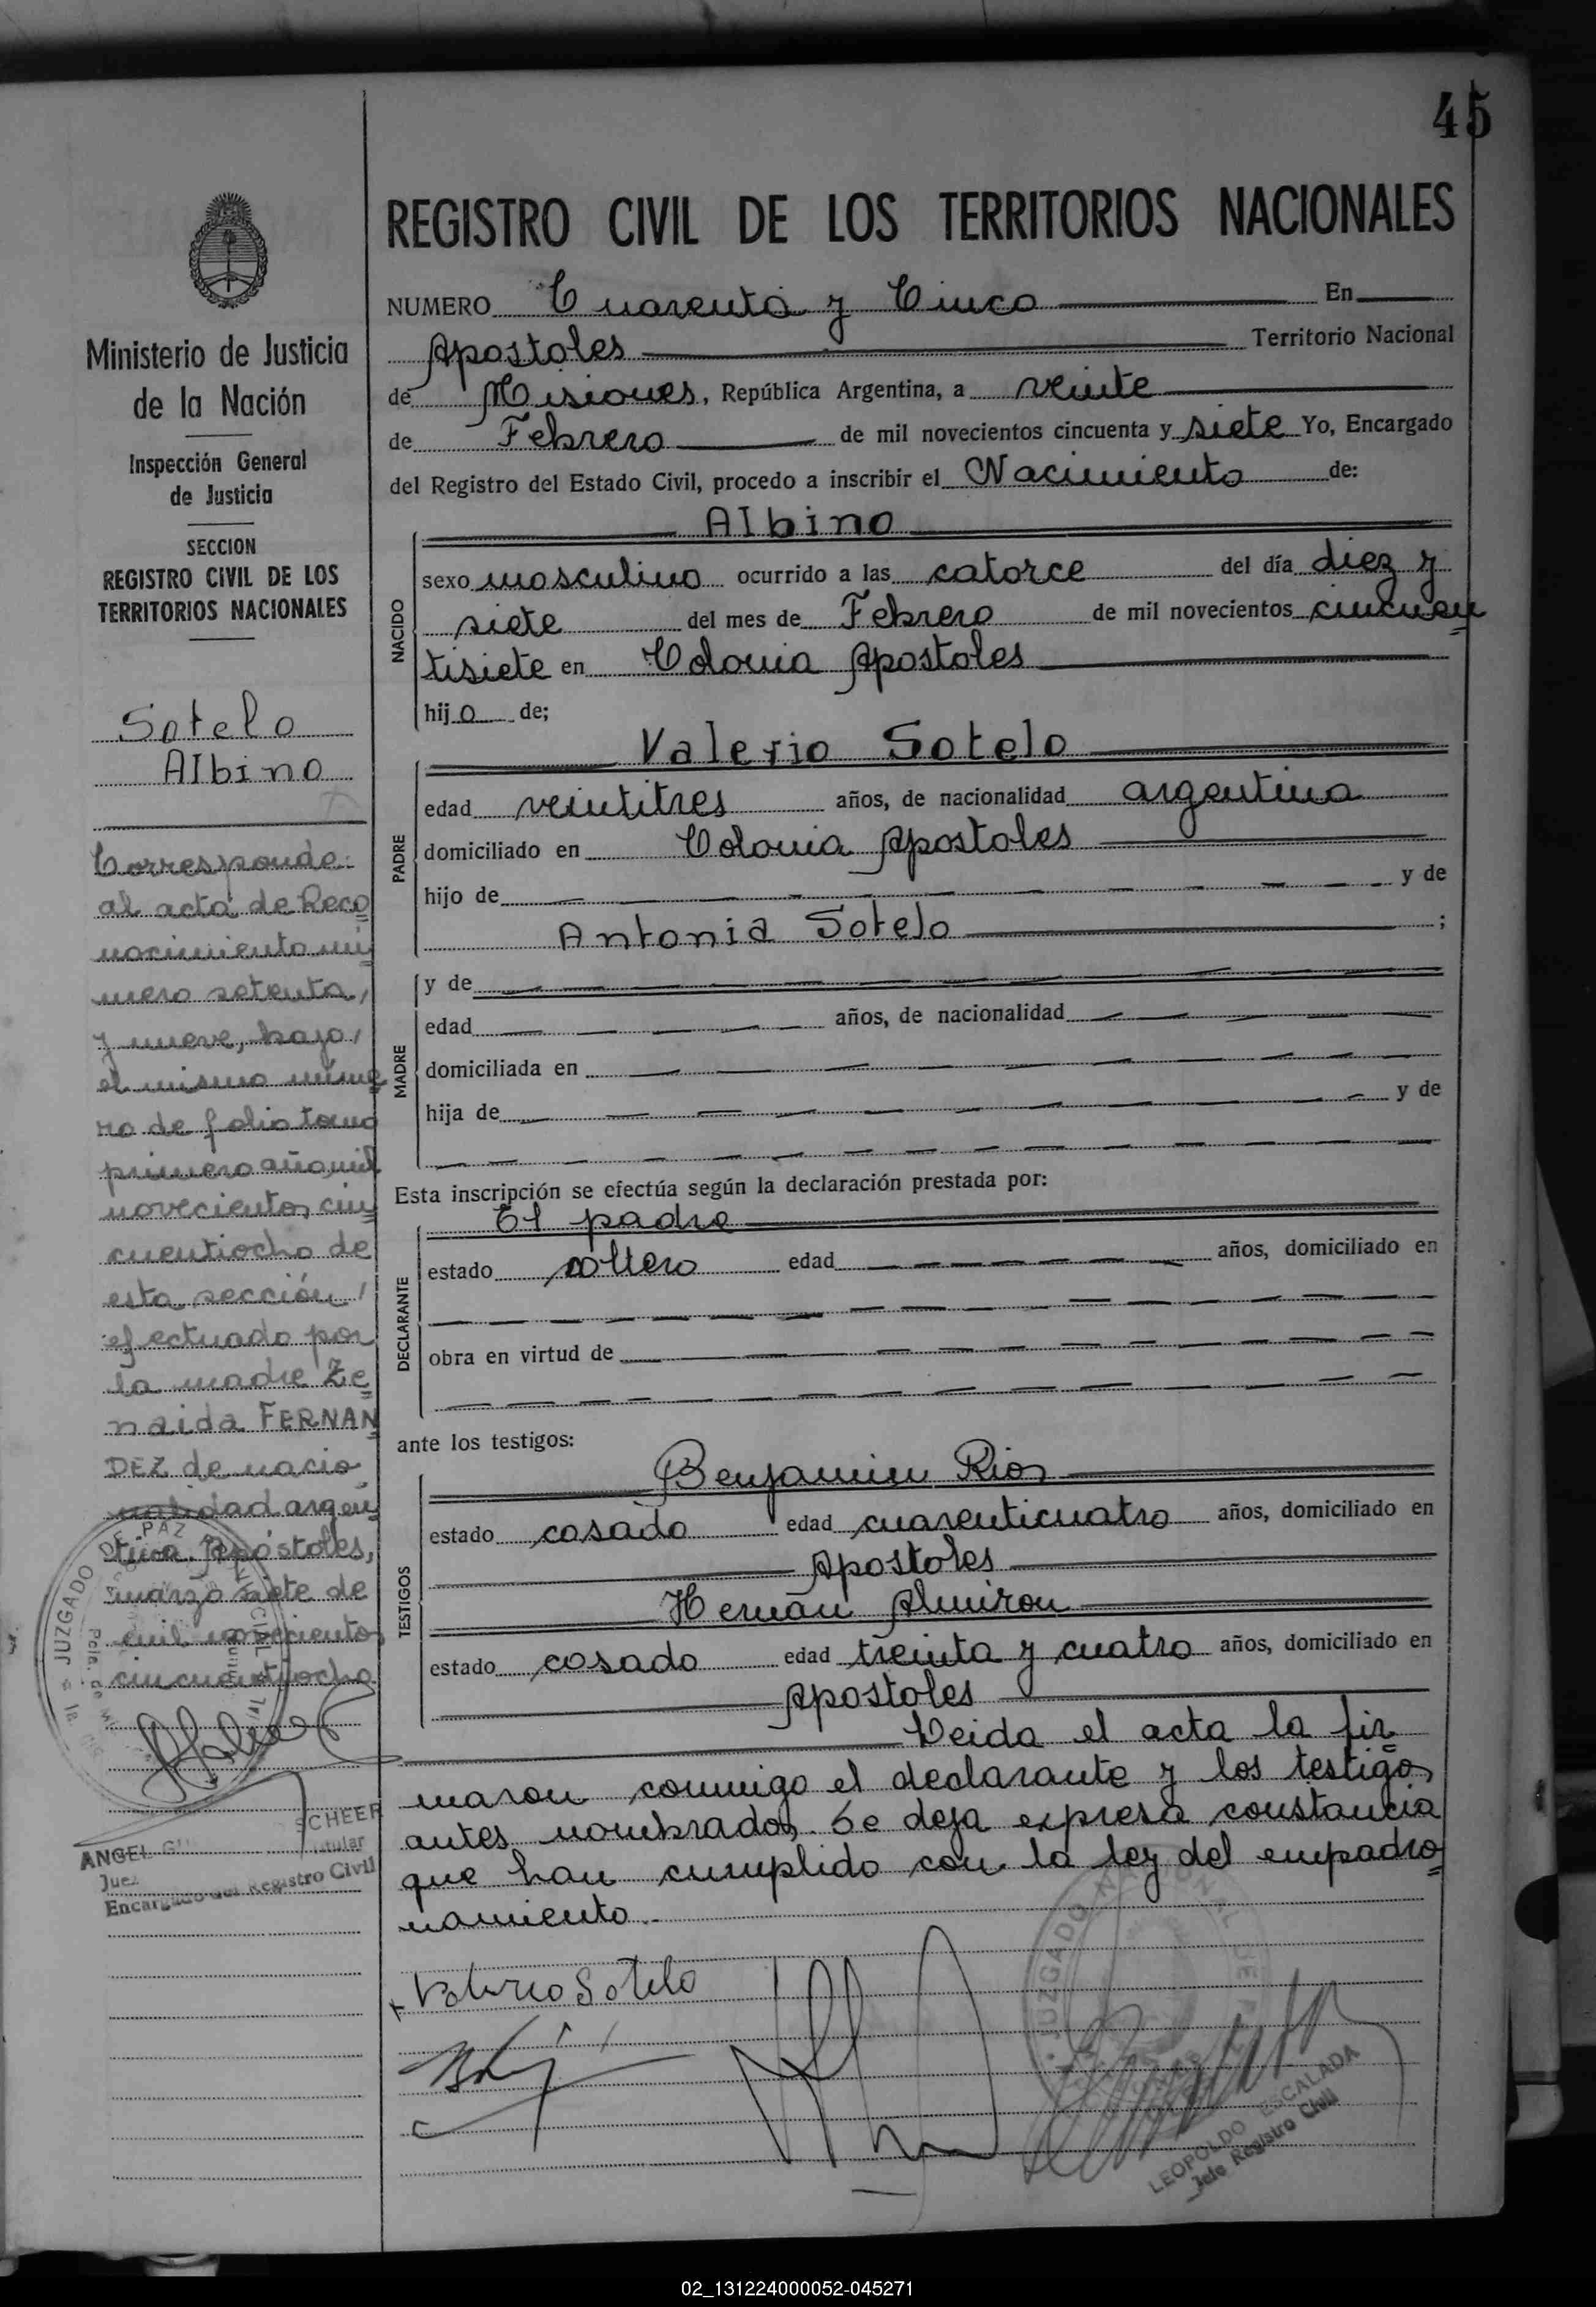 45
REGISTRO CIVIL DE LOS TERRITORIOS NACIONALES
NUMERO Cuarenta y Cinco En
Apostoles Territorio Nacional
de Misiones, República Argentina, a veinte
de Febrero de mil novecientos cincuenta y siete Yo, Encargado
del Registro del Estado Civil, procedo a inscribir el Nacimiento de:
Albino
NACIDO
sexo masculino ocurrido a las catorce del día diez y
siete del mes de Febrero de mil novecientos cincuen
tisiete en Colonia Apostoles
hijo de;
Valerio Sotelo
PADRE
edad veintitres años, de nacionalidad argentina
domiciliado en Colonia Apostoles
hijo de y de
Antonia Sotelo ;
MADRE
y de
edad años, de nacionalidad
domiciliada en
hija de y de
Esta inscripción se efectúa según la declaración prestada por:
El padre
DECLARANTE
estado soltero edad años, domiciliado en
obra en virtud de
ante los testigos:
Benjamin Rios
TESTIGOS
estado casado edad cuarenticuatro años, domiciliado en
Apostoles
Hernán Almiron
estado casado edad treinta y cuatro años, domiciliado en
Apostoles
Leida el acta la fir
maron conmigo el declarante y los testigos
antes nombrados. Se deja expresa constancia
que han cumplido con la ley del empadro
namiento.-
Valerio Sotelo
JUZGADO
LEOPOLDO ESCALADA
Jefe Registro Civil
Ministerio de Justicia
de la Nación
Inspección General
de Justicia
SECCION
REGISTRO CIVIL DE LOS
TERRITORIOS NACIONALES
Sotelo
Albino
Corresponde
al acta de Reco
nocimiento nú
mero setenta,
y nueve, bajo,
el mismo núme
ro de folio tomo
primero año mil
novecientos cin
cuentiocho de
esta sección,
efectuado por
la madre Ze
naida FERNAN
DEZ de nacio
nalidad argen
tina. Apóstoles,
marzo siete de
mil novecientos
cincuentiocho.
JUZGADO DE PAZ
ANGEL SCHEER
Juez Titular
Encargado del Registro Civil
02_131224000052-045271